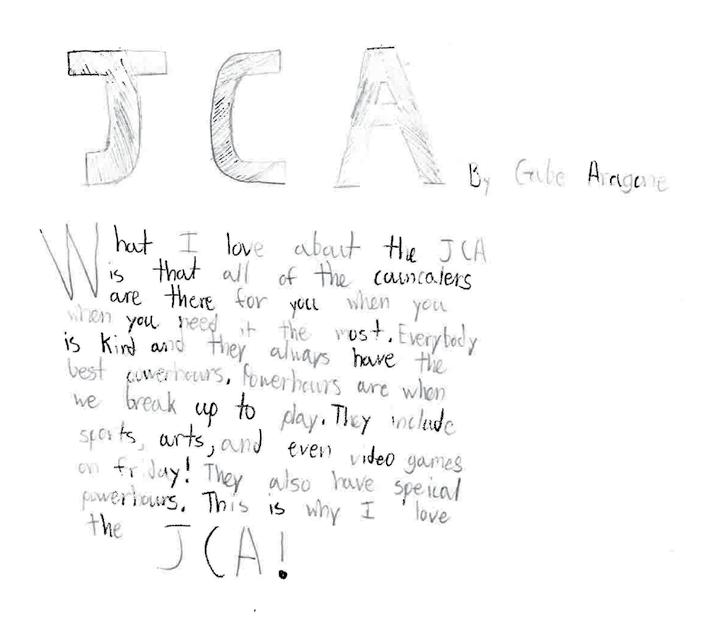 JCA
By Gabe Aragone
What I love about the JCA
is that all of the cauncalers
are there for you when you
when you need it the most. Everybody
is kind and they always have the
best powerhours. Powerhours are when
we break up to play. They include
sports, arts, and even video games
on friday! They also have speical
powerhours. This is why I love
the JCA!